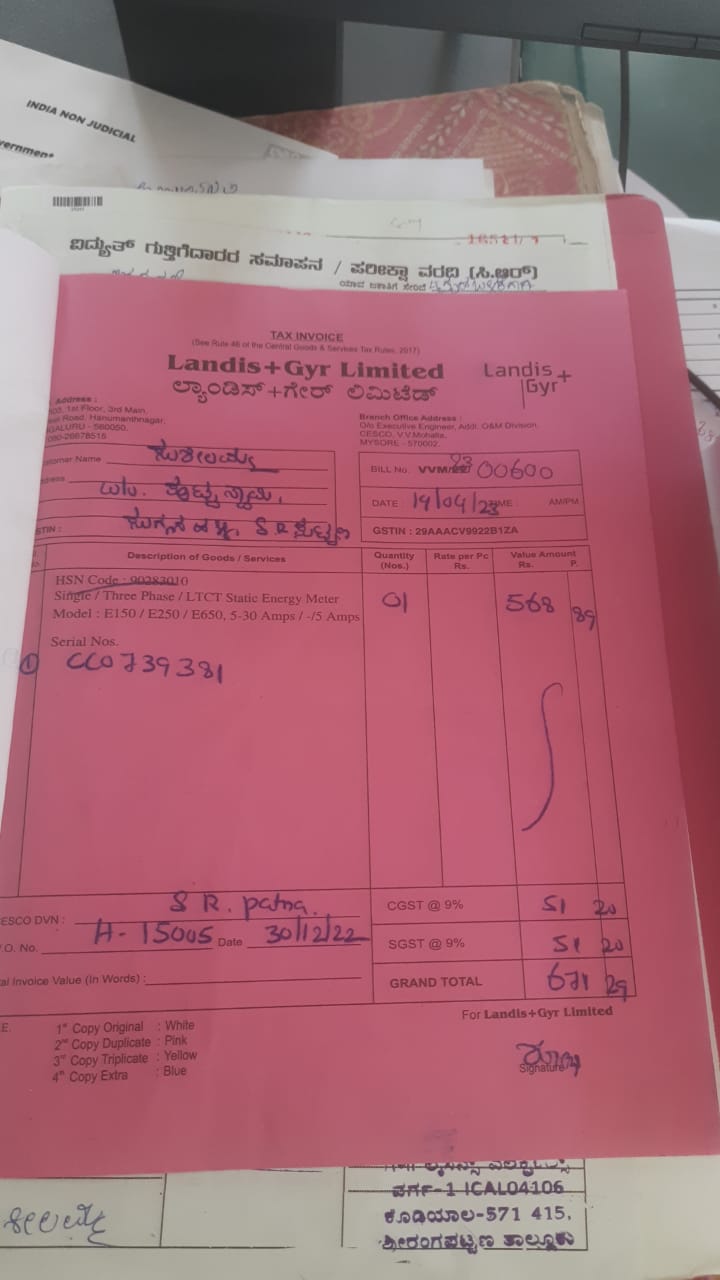 INDIA NON JUDICIAL
ವಿದ್ಯುತ್ ಗುತ್ತಿಗೆದಾರರ ಸಮಾಪನ / ಪರೀಕ್ಷಾ ವರದಿ (ಸಿ.ಆರ್)
TAX INVOICE
(See Rule 46 of the Central Goods & Services Tax Rules, 2017)
Landis+Gyr Limited
Landis
Gyr+
ಲ್ಯಾಂಡಿಸ್+ಗೇರ್ ಲಿಮಿಟೆಡ್
Address :
1st Floor, 3rd Main,
Road, Hanumanthnagar,
560050.
080-26678516
Branch Office Address :
O/o Executive Engineer, Addl. O&M Division,
CESCO, V.V.Mohalla,
MYSORE - 570002.
Name ಸುಶೀಲಮ್ಮ
BILL No. VVM/ 23 00600
DATE 14/04/23 AM/PM
S R ಪಟ್ಟಣ
GSTIN : 29AAACV9922B1ZA
Description of Goods / Services
Quantity (Nos.)
Rate per Pc Rs.
Value Amount Rs. P.
HSN Code : 90283010
Single / Three Phase / LTCT Static Energy Meter 01 568 89
Model : E150 / E250 / E650, 5-30 Amps / -/5 Amps
Serial Nos.
1 CC0739381
ESCO DVN : S R. patna.
CGST @ 9% 51 20
O. No. H-15005 Date 30/12/22
SGST @ 9% 51 20
Invoice Value (In Words) :
GRAND TOTAL 671 29
For Landis+Gyr Limited
1st Copy Original : White
2nd Copy Duplicate : Pink
3rd Copy Triplicate : Yellow
4th Copy Extra : Blue
Signature
ವರ್ಗ-1 ICAL04106
ಕೊಡಿಯಾಲ-571 415,
ಶ್ರೀರಂಗಪಟ್ಟಣ ತಾಲ್ಲೂಕು